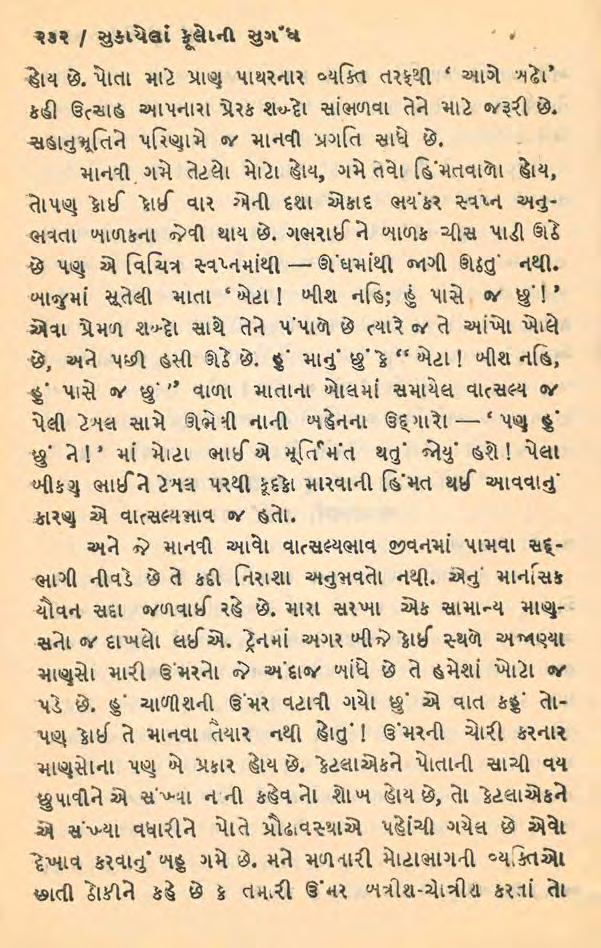 ૨૩૨ / સુકાયેલાં ફૂલોની સુગંધ
હોય છે. પોતા માટે પ્રાણ પાથરનાર વ્યક્તિ તરફથી ‘ આગે બઢો’
કહી ઉત્સાહ આપનારા પ્રેરક શબ્દો સાંભળવા તેને માટે જરૂરી છે.
સહાનુભૂતિને પરિણામે જ માનવી પ્રગતિ સાધે છે.
માનવી ગમે તેટલો મોટો હોય, ગમે તેવો હિંમતવાળો હોય,
તોપણ કોઈ કોઈ વાર એની દશા એકાદ ભયંકર સ્વપ્ન અનુ-
ભવતા બાળકના જેવી થાય છે. ગભરાઈ ને બાળક ચીસ પાડી ઊઠે
છે પણ એ વિચિત્ર સ્વપ્નમાંથી — ઊંઘમાંથી જાગી ઊઠતું નથી.
બાજુમાં સૂતેલી માતા ‘બેટા! બીશ નહિ; હું પાસે જ છું!’
એવા પ્રેમળ શબ્દો સાથે તેને પંપાળે છે ત્યારે જ તે આંખો ખોલે
છે, અને પછી હસી ઊઠે છે. હું માનું છું કે “ બેટા! બીશ નહિ,
હું પાસે જ છું” વાળા માતાના બોલમાં સમાયેલ વાત્સલ્ય જ
પેલી ટેબલ સામે ઊભેલી નાની બહેનના ઉદ્ગારો — ‘પણ હું
છું ને!’ માં મોટા ભાઈ એ મૂર્તિમંત થતું જોયું હશે! પેલા
બીકણ ભાઈને ટેબલ પરથી કૂદકો મારવાની હિંમત થઈ આવવાનું
કારણ એ વાત્સલ્યભાવ જ હતો.
અને જે માનવી આવો વાત્સલ્યભાવ જીવનમાં પામવા સદ્-
ભાગી નીવડે છે તે કદી નિરાશા અનુભવતો નથી. એનું માનસિક
યૌવન સદા જળવાઈ રહે છે. મારા સરખા એક સામાન્ય માણ-
સનો જ દાખલો લઈએ. ટ્રેનમાં અગર બીજે કોઈ સ્થળે અજાણ્યા
માણસો મારી ઉંમરનો જે અંદાજ બાંધે છે તે હમેશાં ખોટો જ
પડે છે. હું ચાળીશની ઉંમર વટાવી ગયો છું એ વાત કહું તો-
પણ કોઈ તે માનવા તૈયાર નથી હોતું! ઉંમરની ચોરી કરનાર
માણસોના પણ બે પ્રકાર હોય છે. કેટલાએકને પોતાની સાચી વય
છુપાવીને એ સંખ્યા નાની કહેવાનો શોખ હોય છે, તો કેટલાએકને
એ સંખ્યા વધારીને પોતે પ્રૌઢાવસ્થાએ પહોંચી ગયેલ છે એવો
દેખાવ કરવાનું બહુ ગમે છે. મને મળનારી મોટાભાગની વ્યક્તિઓ
છાતી ઠોકીને કહે છે ક તમારી ઉંમર બત્રીશ-ચોત્રીશ કરતાં તો